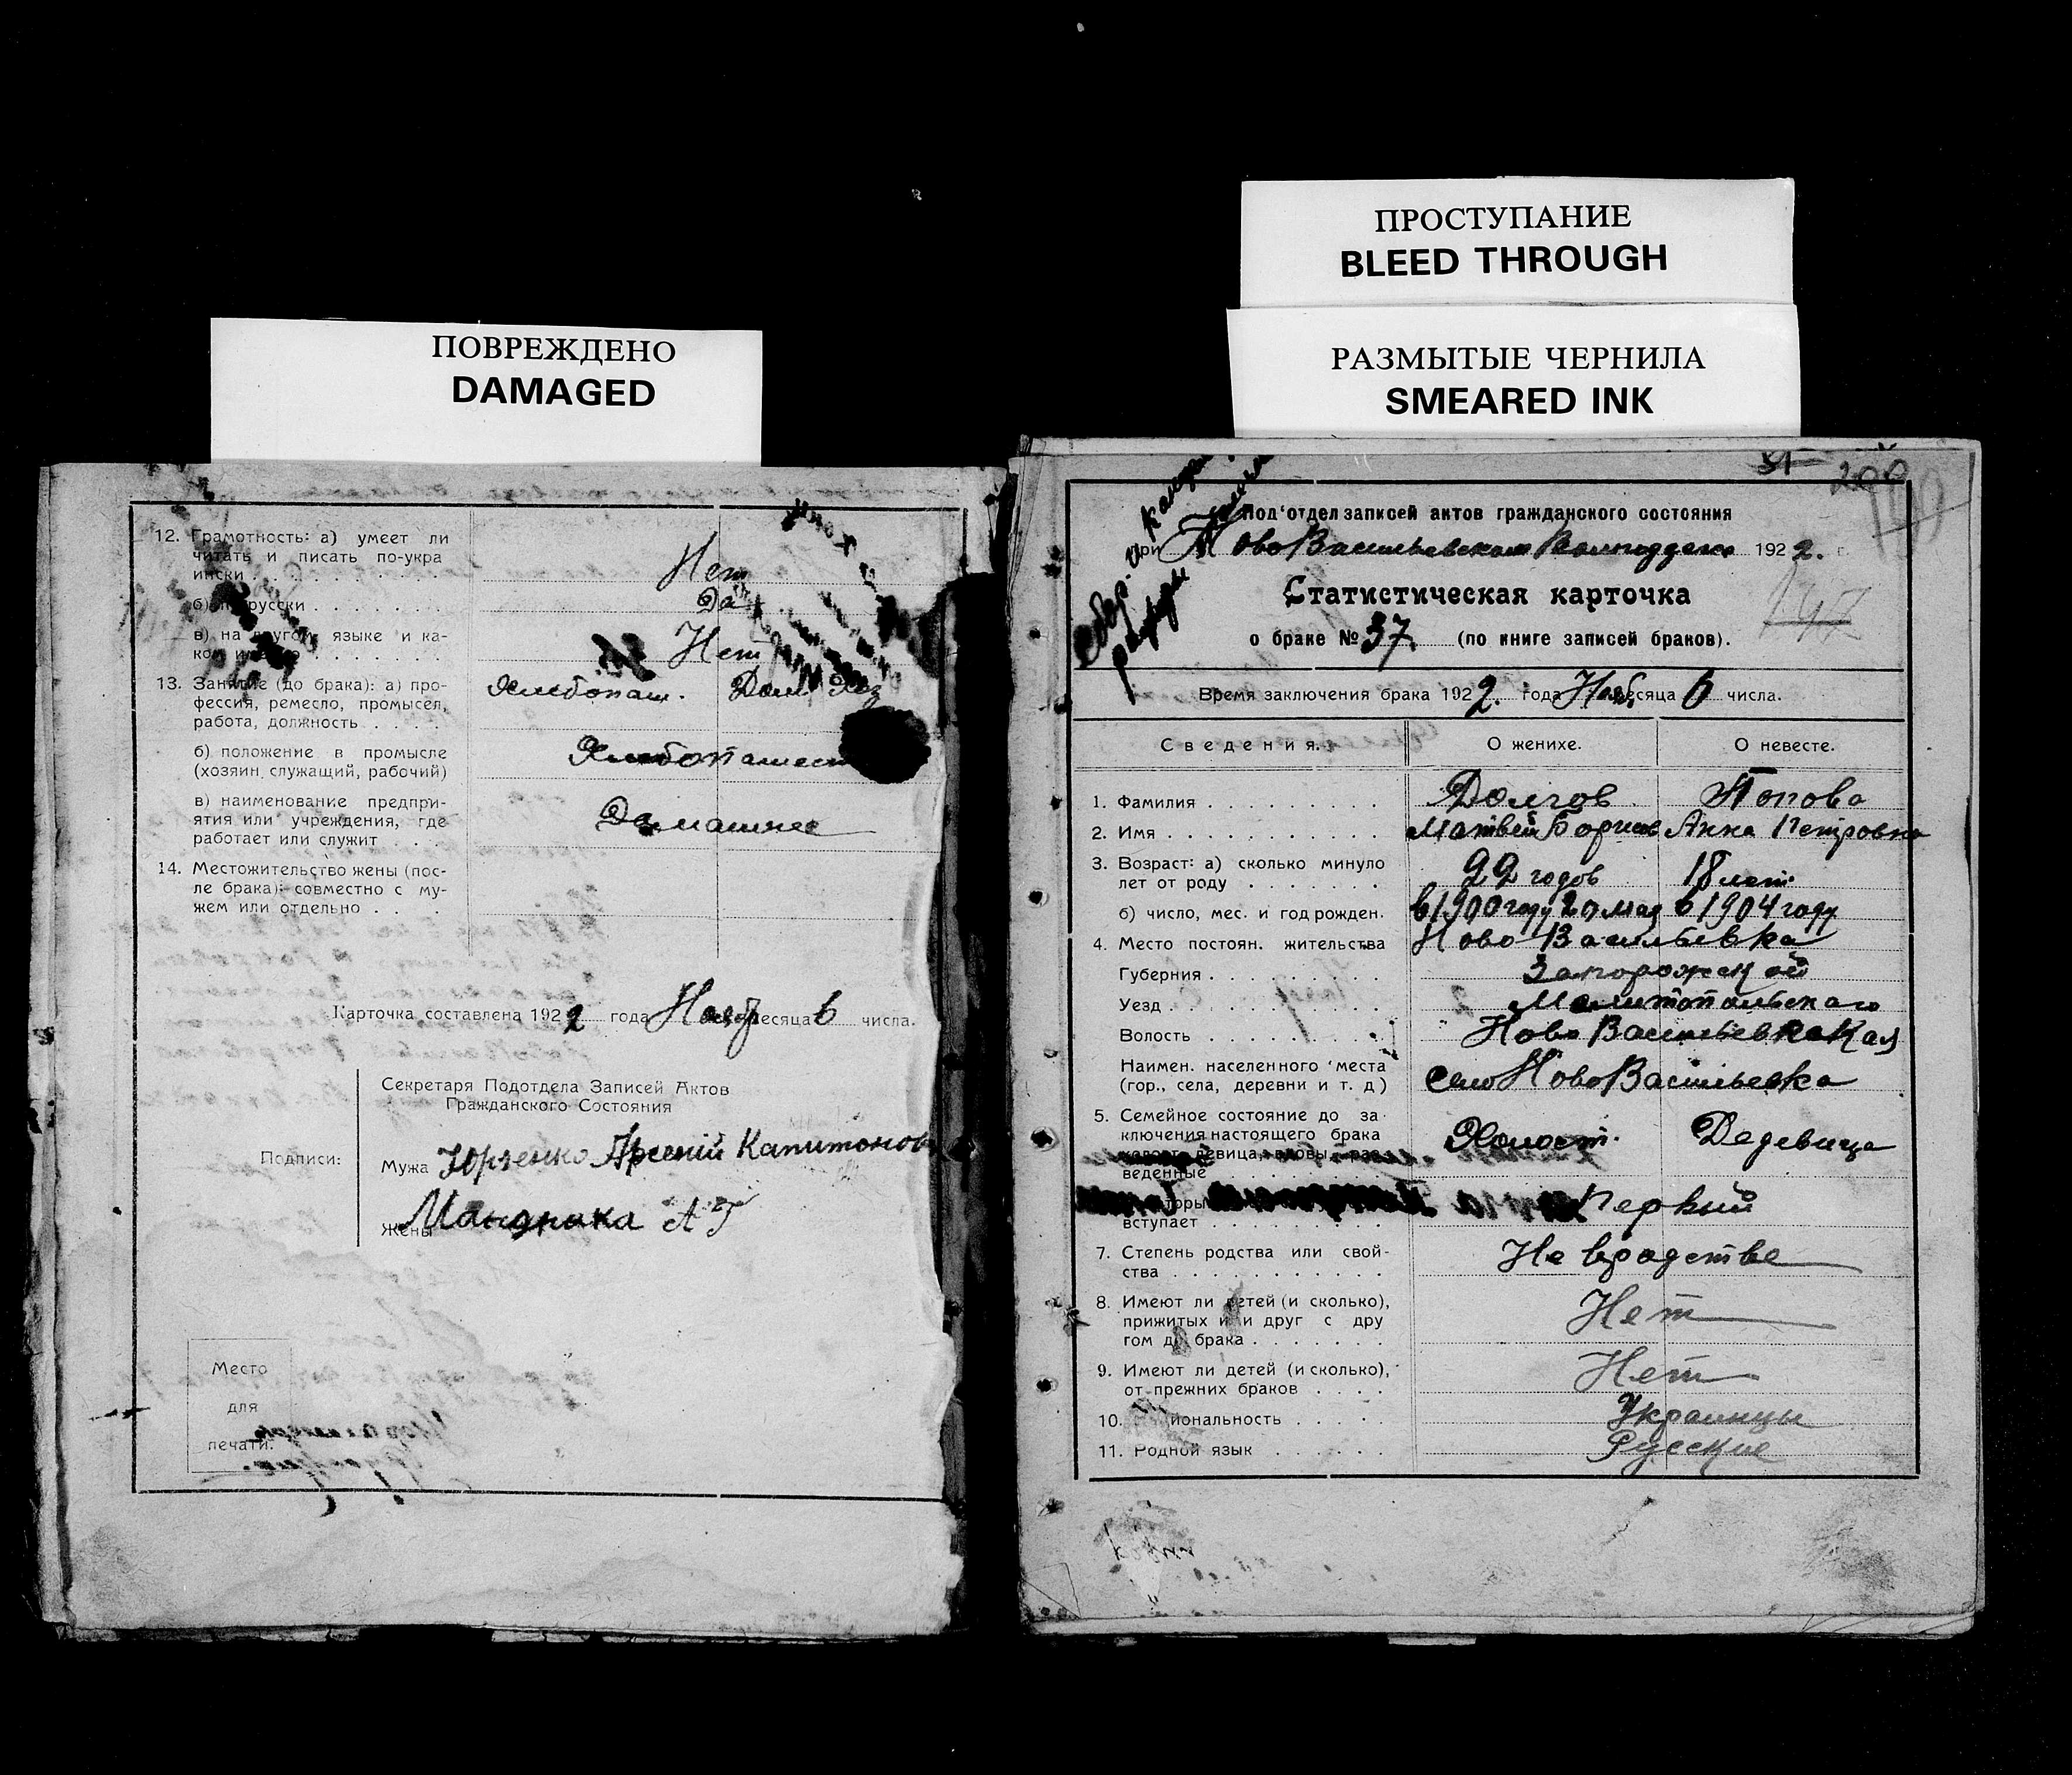 ПОВРЕЖДЕНО
DAMAGED
12. Грамотность: а) умеет ли
читать и писать по-укра
ински
Нет
б) по русски
Да
в) на другом языке и ка-
ком именно
Нет
13. Занятие (до брака): а) про-
фессия, ремесло, промысел,
работа, должность
Хлебопаш. Дом. Хоз
б) положение в промысле
(хозяин, служащий, рабочий)
в) наименование предпри-
ятия или учреждения, где
работает или служит
Домашнее
14. Местожительство жены (пос-
ле брака): совместно с му-
жем или отдельно
Карточка составлена 1922 года Нояб месяца 6 числа.
Секретаря Подотдела Записей Актов
Гражданского Состояния
Подписи:
Мужа Юрченко Арсений Капитонов
Жены Мандрика А Г
Место
для
печати.
ПРОСТУПАНИЕ
BLEED THROUGH
РАЗМЫТЫЕ ЧЕРНИЛА
SMEARED INK
Под'отдел записей актов гражданского состояния
при Ново Васильевском 1922. г.
Статистическая карточка
147
о браке № 37. (по книге записей браков).
Время заключения брака 1922. года Нояб. месяца 6 числа.
Сведения. О женихе. О невесте.
1. Фамилия Долгов Попова
2. Имя Матвей Борисов Анна Петровна
3. Возраст: а) сколько минуло
лет от роду 22 годов 18 лет.
б) число, мес. и год рожден. в 1900 году 20 мая в 1904 году
4. Место постоян. жительства Ново Васильевка
Губерния Запорожской
Уезд Мелитопольскаго
Волость Ново Васильевская
Наимен. населенного места
(гор., села, деревни и т. д) село Ново Васильевка
5. Семейное состояние до за
ключения настоящего брака
Холост. Дедевица
холост, девица, вдовы, раз-
веденные
Первый
вступает
7. Степень родства или свой-
ства Не вродстве
8. Имеют ли детей (и сколько),
прижитых ими друг с дру
гом до брака Нет
9. Имеют ли детей (и сколько),
от прежних браков Нет
10. Национальность Украинцы
11. Родной язык Русские